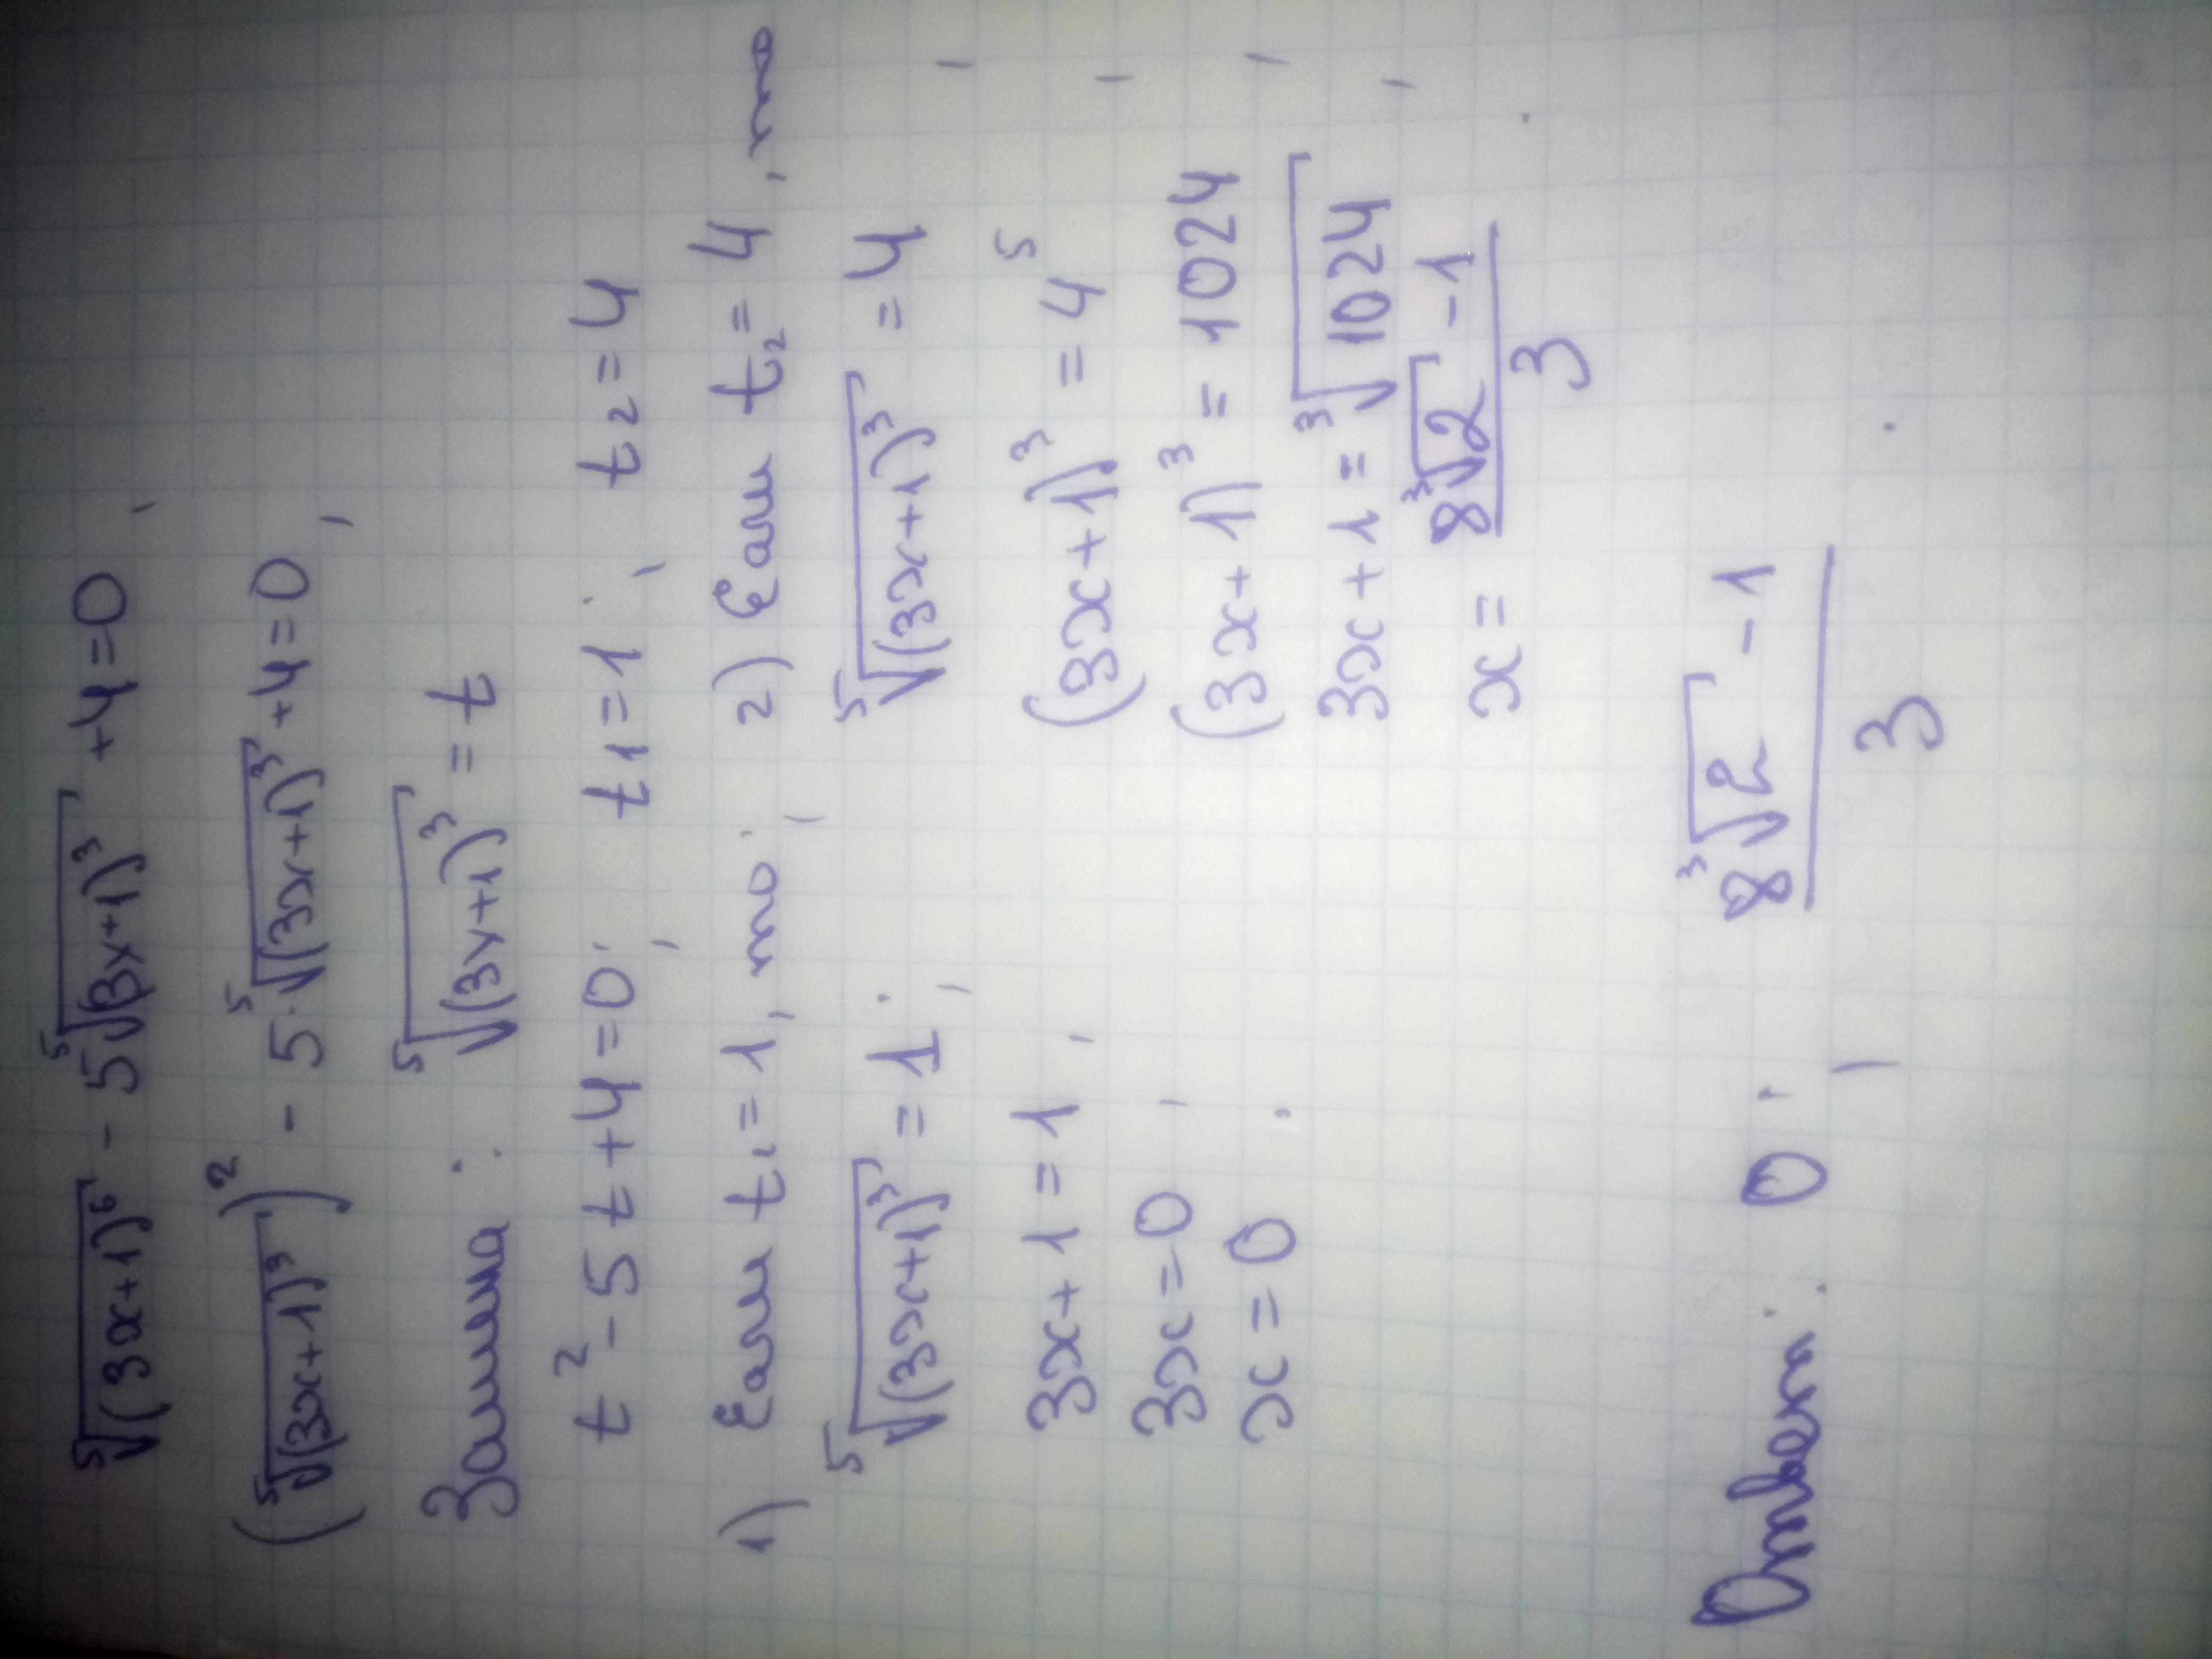 ⁵√(3x+1)⁶ - 5 ⁵√(3x+1)³ + 4 = 0,
(⁵√(3x+1)³)² - 5·⁵√(3x+1)³ + 4 = 0,
Замена: ⁵√(3x+1)³ = t
t² - 5t + 4 = 0; t₁ = 1; t₂ = 4
1) Если t₁ = 1, то;
⁵√(3x+1)³ = 1;
3x + 1 = 1,
3x = 0,
x = 0.
2) Если t₂ = 4, то
⁵√(3x+1)³ = 4,
(3x+1)³ = 4⁵,
(3x+1)³ = 1024,
3x + 1 = ³√1024,
x = (8³√2 - 1)/3.
Ответ: 0; (8³√2 - 1)/3.